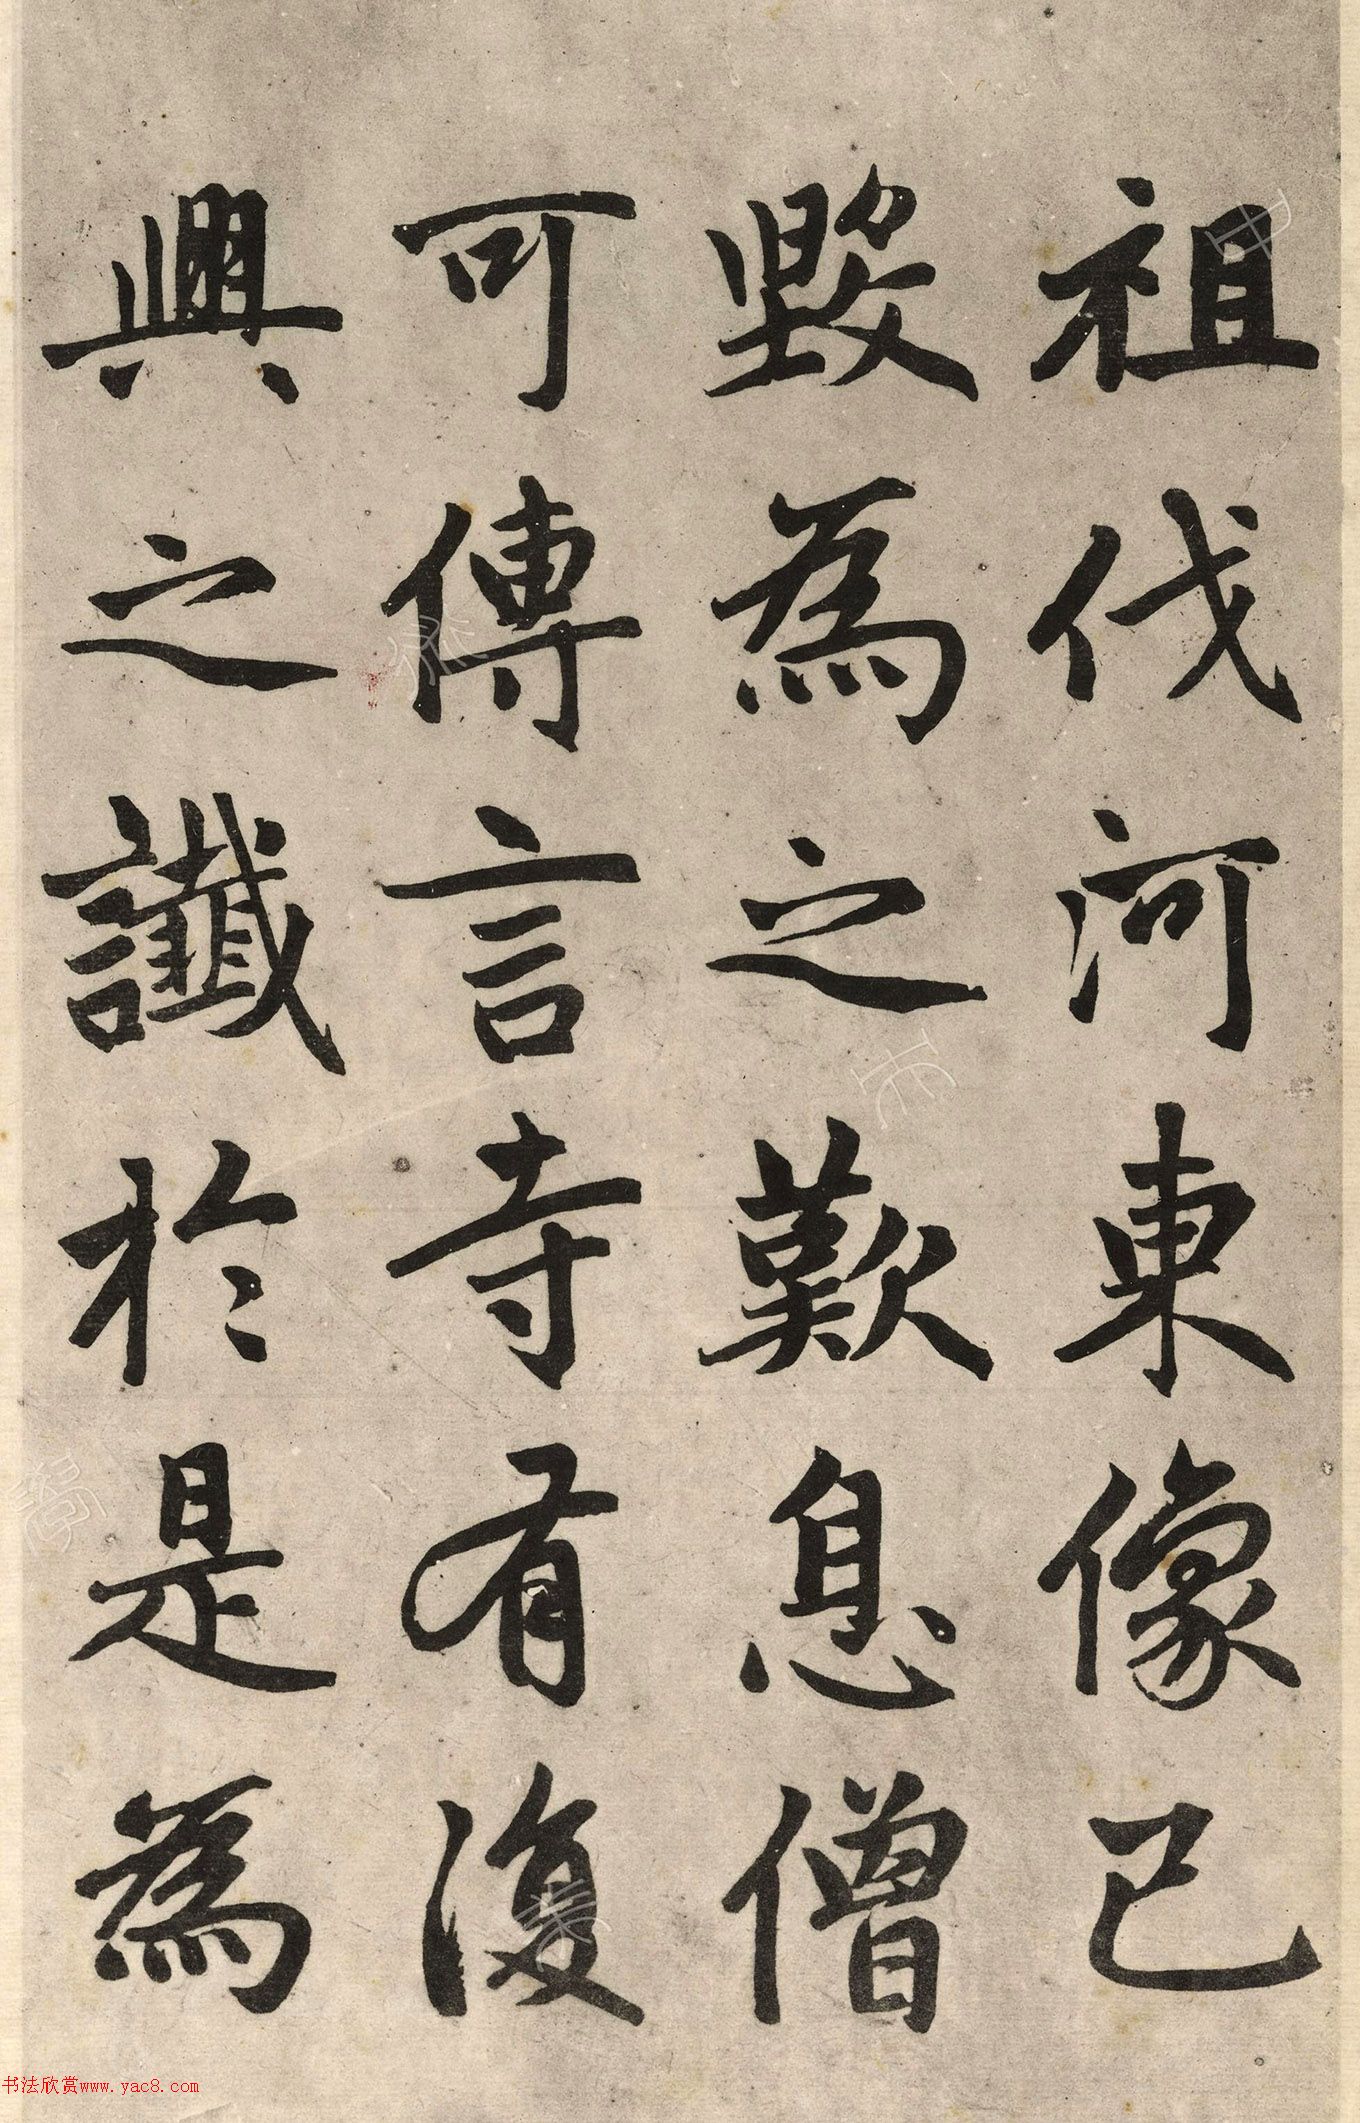 祖伐河東像已
毀為之歎息僧
可傳言寺有復
興之讖於是為
书法欣赏www.yac8.com